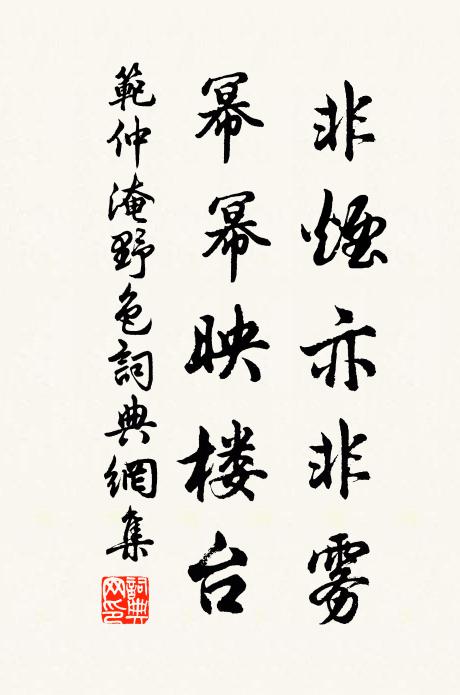 非煙亦非雾
幂幂映楼台
範仲淹野色詞典網集
詞典網印